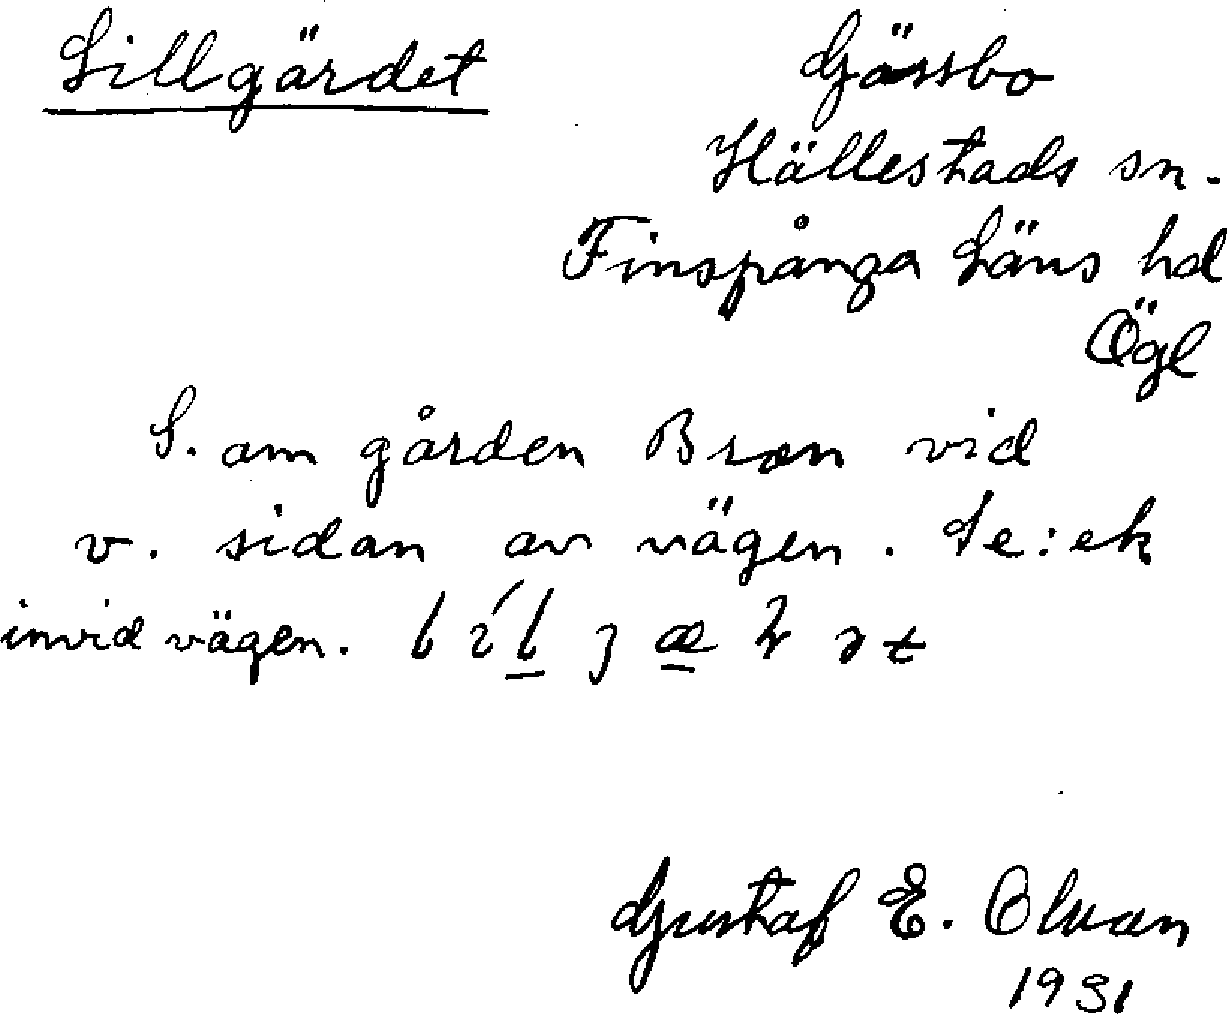 Lillgärdet
Gässbo
Hällestads sn.
Finspånga Läns hd
Ögl
S. om gården Bron vid
v. sidan av vägen. Te: ek
invid vägen.
Gustaf E.
1931